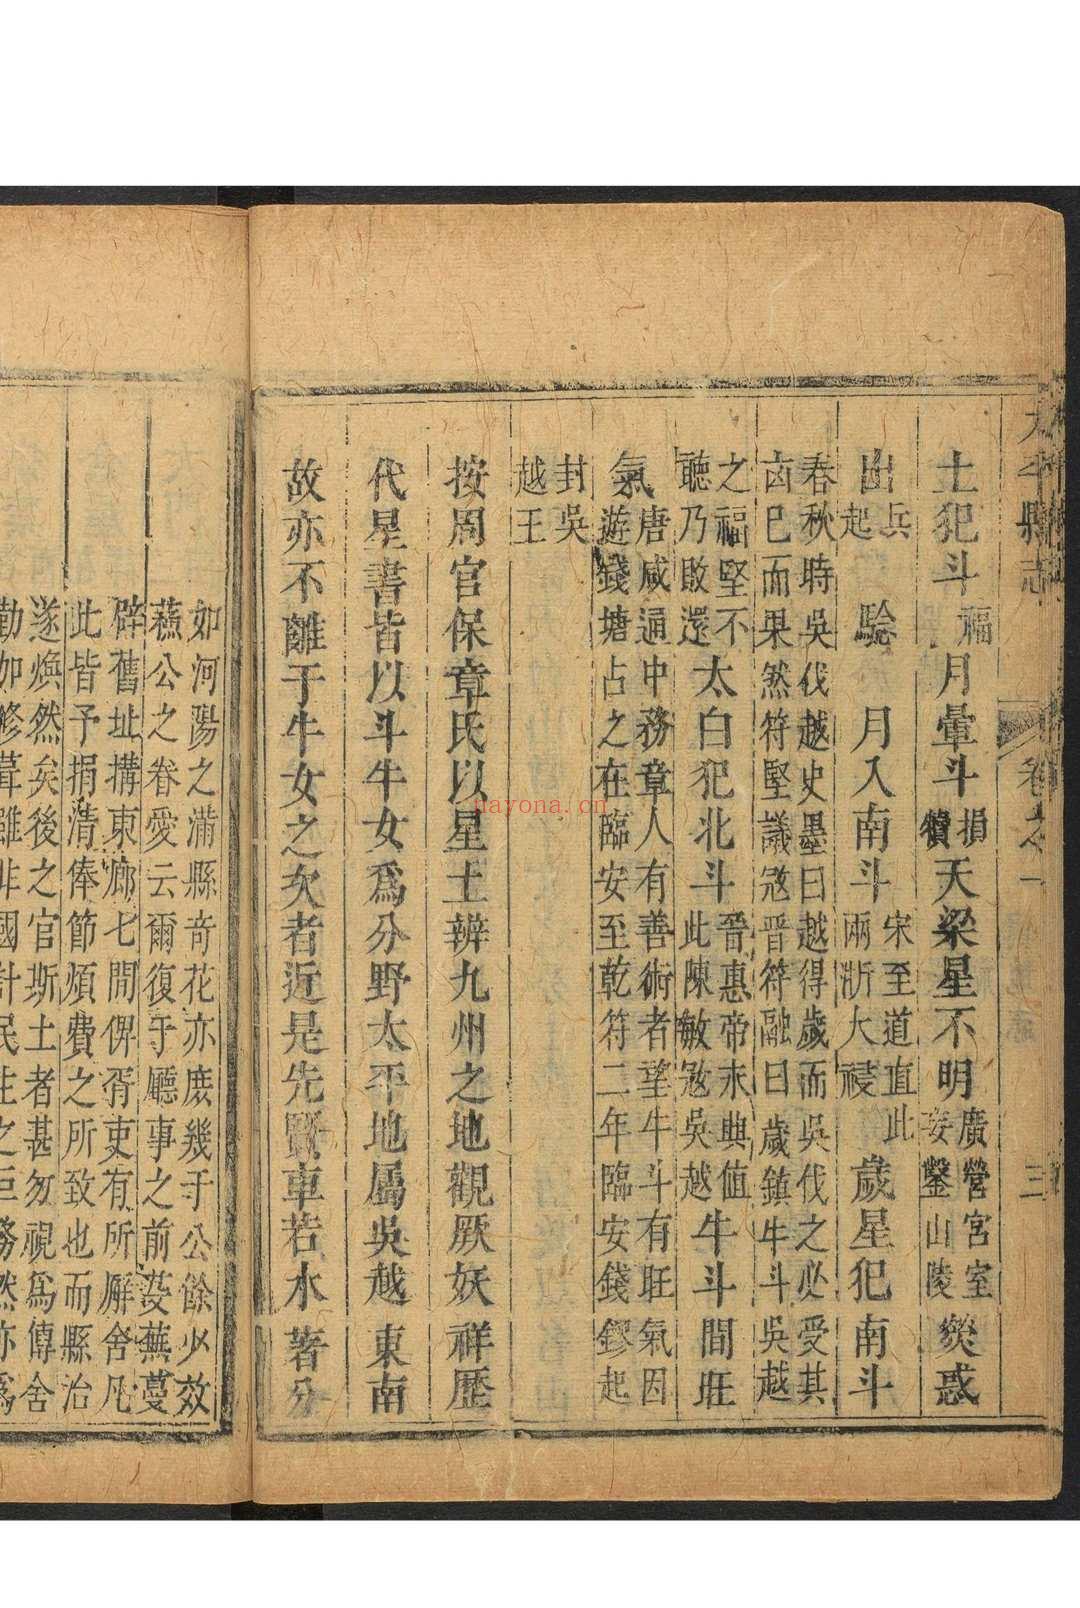 太平縣志 卷之一 三
土犯斗福月暈斗損犢天梁星不明廣營宮室妄鑿山陵熒惑
出兵起 驗 月入南斗宋至道直此兩浙大祲歲星犯南斗
春秋時吳伐越史墨曰越得歲而吳伐之必受其
凶已而果然符堅議寇晉符融曰歲鎮牛斗吳越
之福堅不聽乃敗還太白犯北斗晉惠帝末典值此陳敏寇吳越牛斗間旺
氣唐咸通中務章人有善術者望牛斗有旺氣因遊錢塘占之在臨安至乾符二年臨安錢鏐起
封吳越王
按周官保章氏以星土辨九州之地觀厥妖祥歷
代星書皆以斗牛女為分野太平地屬吳越東南
故亦不離于牛女之次者近是先賢車若水著分
如河陽之滿縣奇花亦庶幾于公餘少效
蘓公之眷愛云爾復于廳事之前芟蕪蔓
辟舊址搆東廊七間俾胥吏有所廨舍凡
此皆予捐清俸節煩費之所致也而縣治
遂煥然矣後之官斯土者甚勿視為傳舍
勤加修葺雖非國計民生之巨務然亦為
nayona.cn